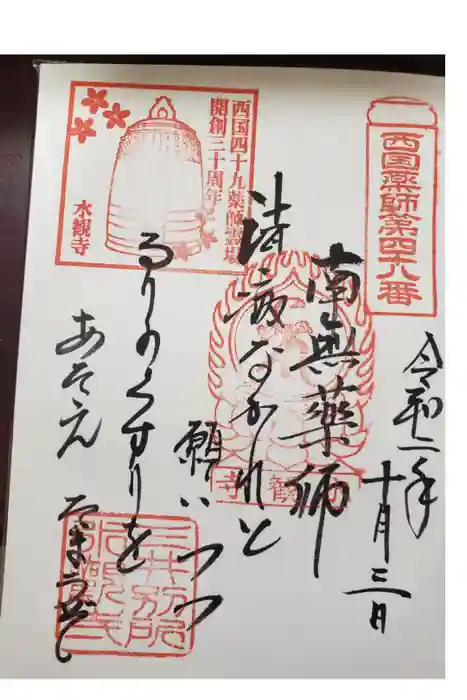 西国薬師第四十八番
令和二年
十月三日
南無薬師
なかれと
願いつつ
るりのくすりを
あたえ
西国四十九薬師霊場
開創三十周年
水観寺
三井別所
水観寺